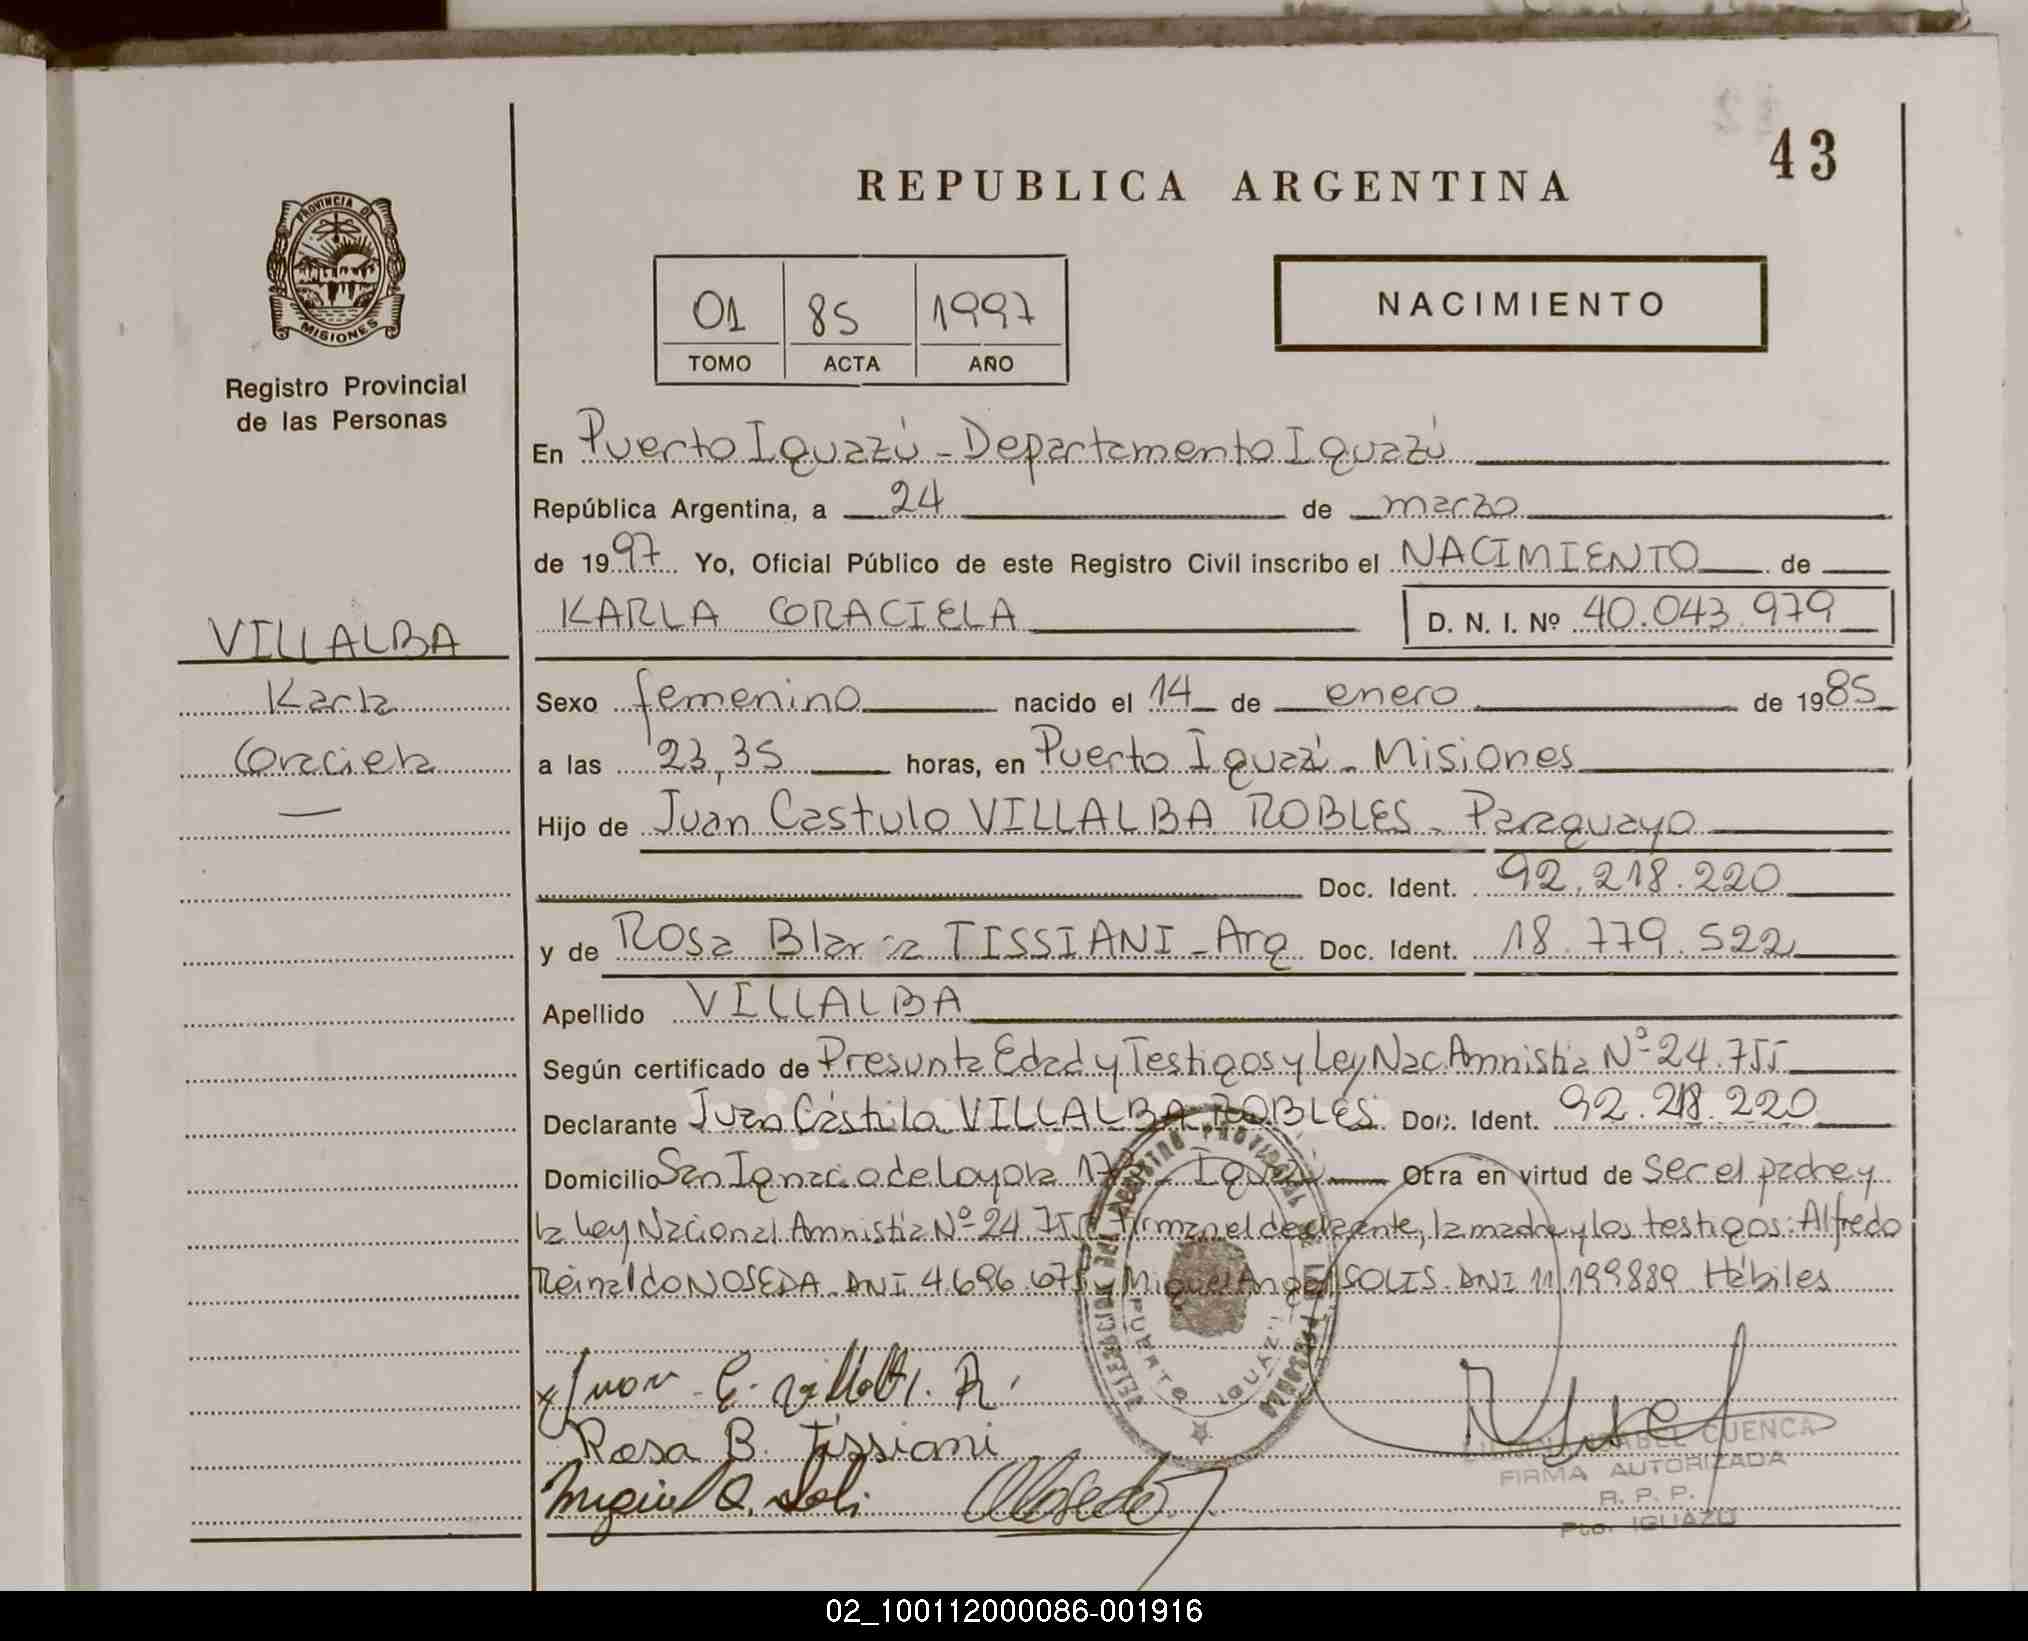 43
REPUBLICA ARGENTINA
PROVINCIA DE
MISIONES
Registro Provincial
de las Personas
01 85 1997
TOMO ACTA AÑO
NACIMIENTO
En Puerto Iguazú - Departamento Iguazú
República Argentina, a 24 de marzo
de 1997 Yo, Oficial Público de este Registro Civil inscribo el NACIMIENTO de
KARLA GRACIELA D. N. I. Nº 40.043.979
VILLALBA
Karla
Graciela
Sexo femenino nacido el 14 de enero de 1985
a las 23,35 horas, en Puerto Iguazú - Misiones
Hijo de Juan Castulo VILLALBA ROBLES - Paraguayo
Doc. Ident. 92.218.220
y de Rosa Blanca TISSIANI - Arg Doc. Ident. 18.779.522
Apellido VILLALBA
Según certificado de Presunta Edad y Testigos y Ley Nac. Amnistia Nº 24.755
Declarante Juan Cástulo VILLALBA ROBLES Doc. Ident. 92.218.220
Domicilio San Ignacio de Loyola Obra en virtud de ser el padre y
la Ley Nacional Amnistia Nº 24.755 firman el declarante, la madre y los testigos: Alfredo
Reinaldo NOSEDA. DNI 4.696.675 Miguel Angel SOLIS. DNI 11.199889 Hábiles
Juan C. Villalba R.
Rosa B. Tissiani
Miguel A. Solis
DELEGACION DEL REGISTRO PROVINCIAL DE LAS PERSONAS
PUERTO IGUAZU
ISABEL CUENCA
FIRMA AUTORIZADA
R. P. P.
Pto. IGUAZU
02_100112000086-001916